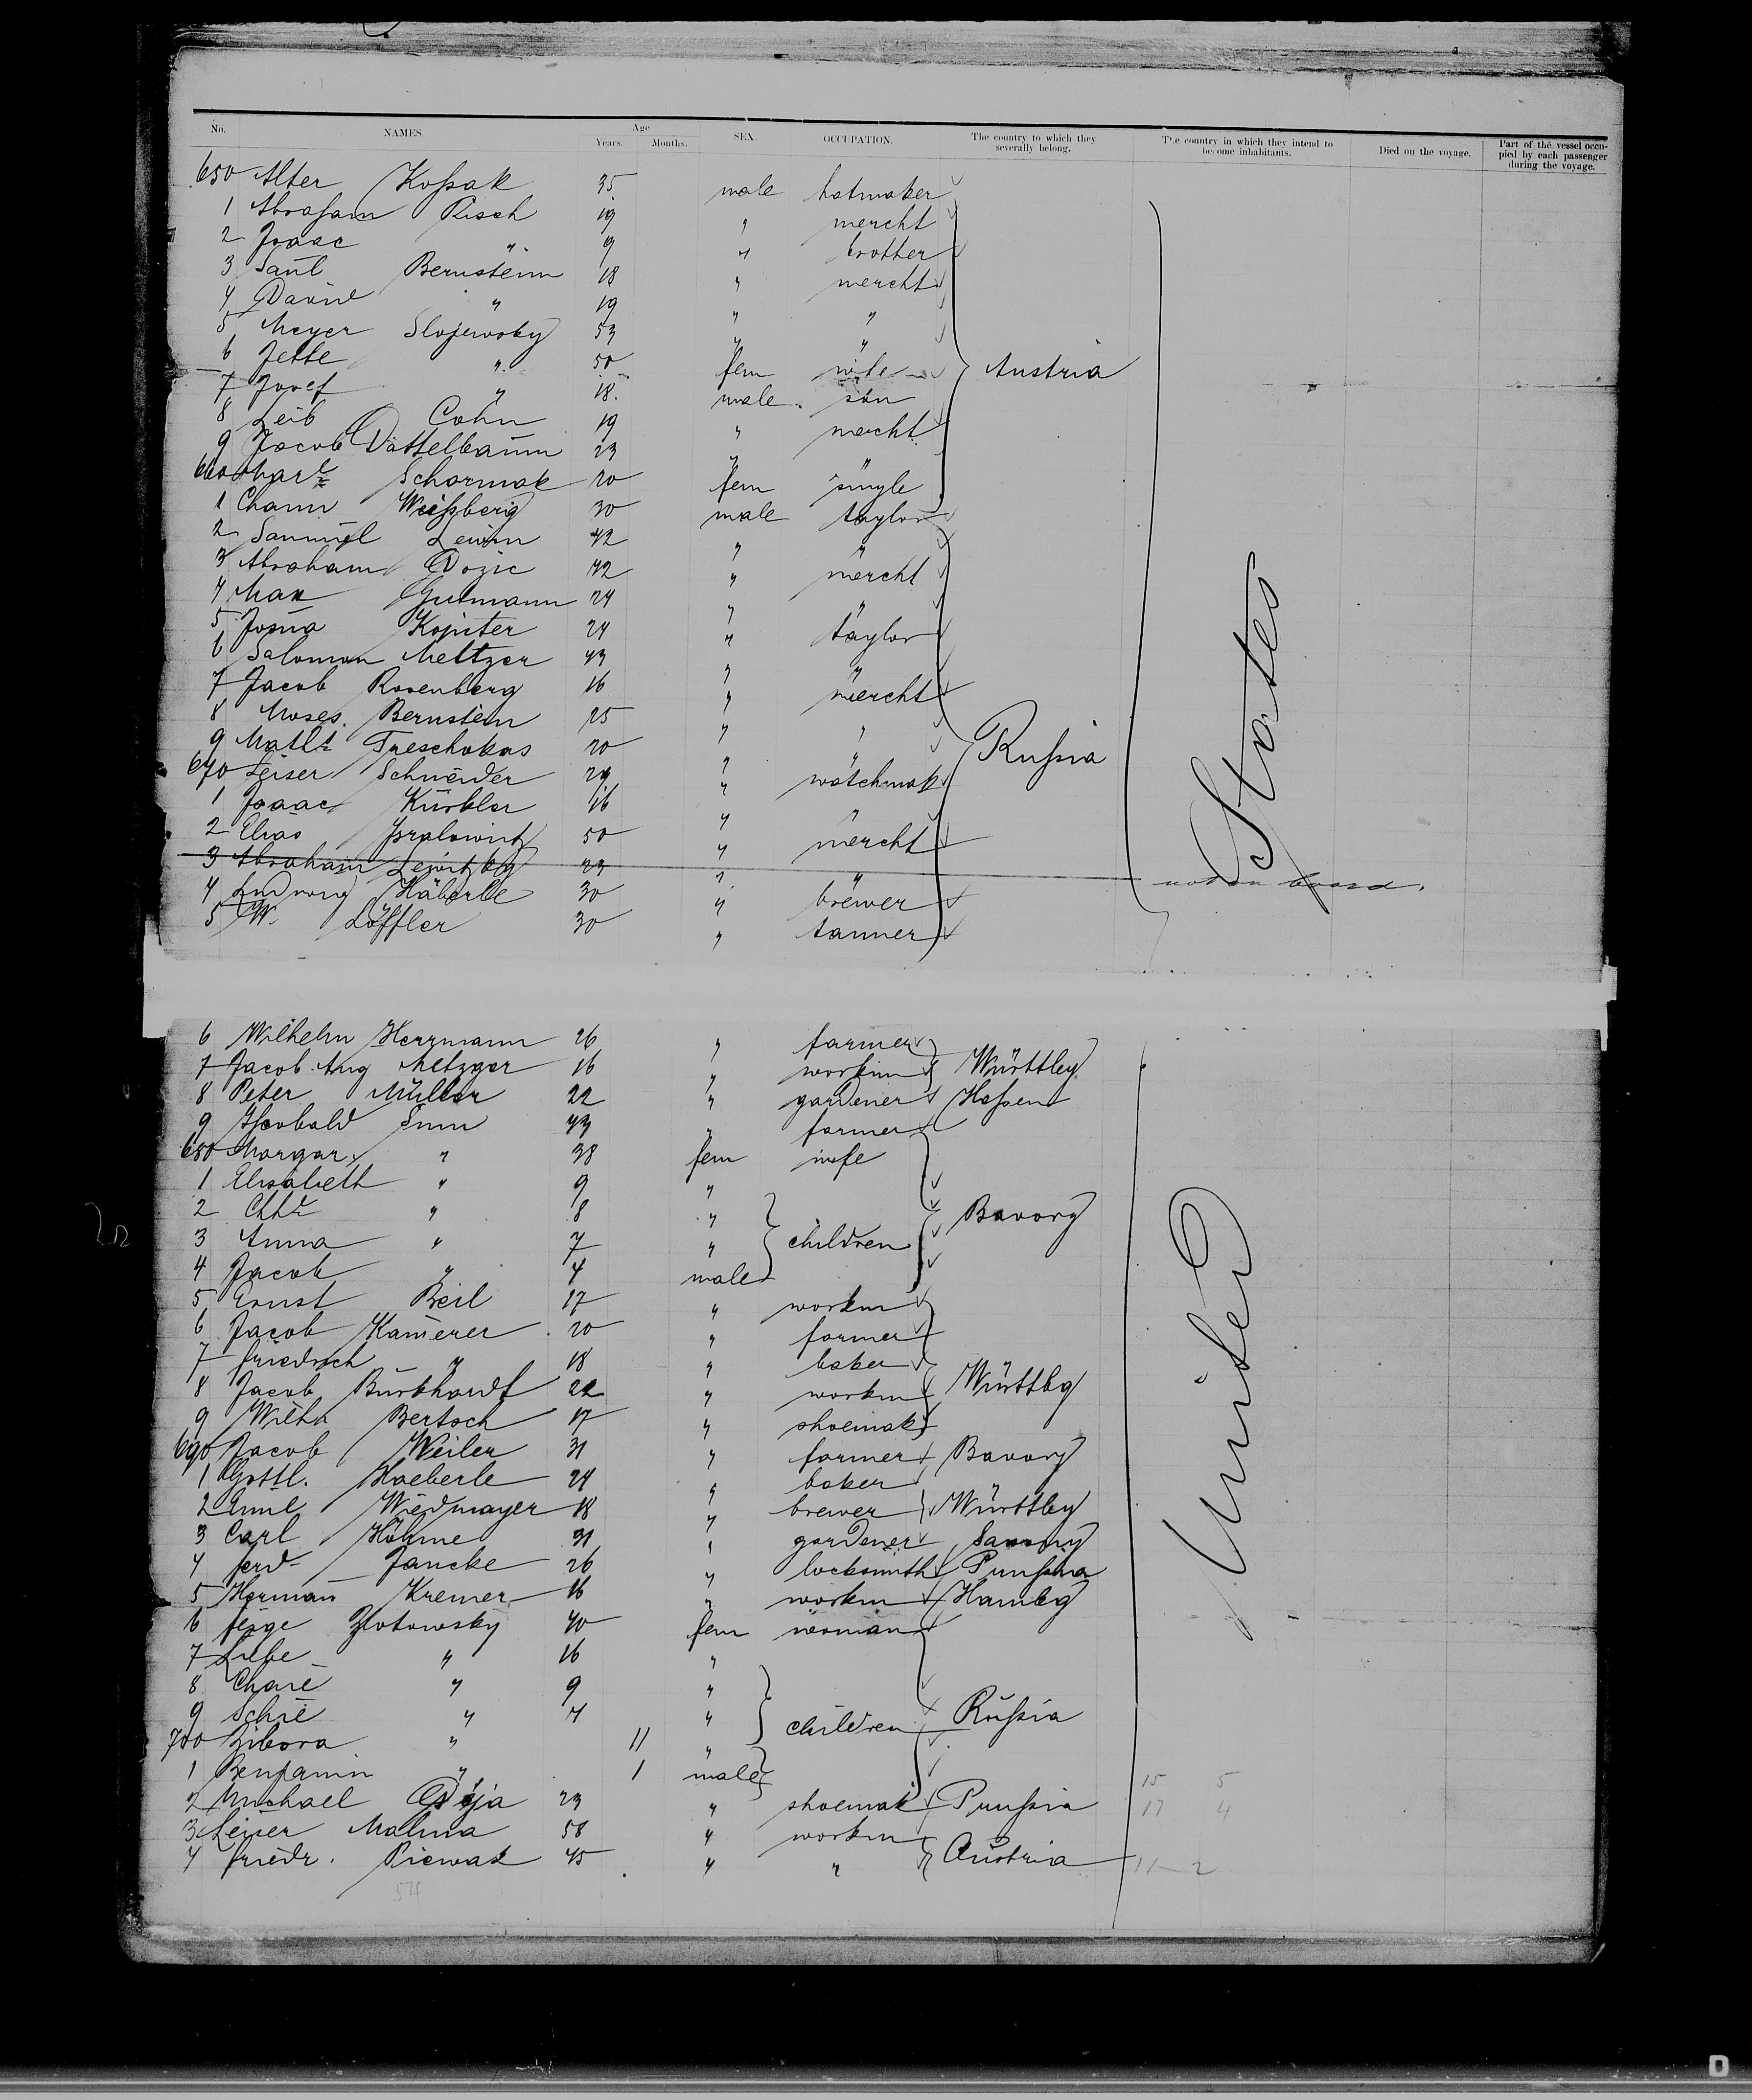 No. NAMES. Age Years. Months. SEX. OCCUPATION. The country to which they severally belong. The country in which they intend to become inhabitants. Died on the voyage. Part of the vessel occupied by each passenger during the voyage.
650 Alter Koßak 35 male hatmaker
1 Abraham Risch 19 " mercht
2 Isaac " 9 " brother
3 Saul Bernstein 18 " mercht
4 David " 19 " "
5 Meyer 53 " "
6 Jette " 50 fem wife Austria
7 Josef " 18 male son
8 Leib Cohn 19 " mercht
9 Jacob Dattelbaum 23 " "
660 Scharmak 20 fem single
1 Chann Weißberg 30 male taylor
2 Samuel Lewin 42 " "
3 Abraham 42 " mercht
4 Max Gutmann 24 " "
5 Josua Kopiter 24 " taylor
6 Salomon Meltzer 43 " "
7 Jacob Rosenberg 16 " mercht
8 Moses Bernstein 25 " " Rußia
9 20 " "
670 Leiser Schneider 29 " watchmak
1 Isaac Kürbler 16 "
2 Elias 50 " mercht
3 Abraham 23 " " not on board.
4 Ludwig Häberle 30 " brewer
5 W. Löffler 30 " tanner
States
6 Wilhelm Herrmann 26 " farmer
7 Jacob Aug Metzger 16 " workm Württbg
8 Peter Müller 22 " gardener Heßen
9 43 " farmer
680 Margar. " 38 fem wife
1 Elisabeth " 9 "
2 " 8 " Bavary
3 Anna " 7 " children
4 Jacob " 4 male
5 Ernst Beil 17 " workm
6 Jacob Kamerer 20 " farmer
7 Friedrich " 18 " baker
8 Jacob Burkhardt 22 " workm Württbg
9 Wilh Bertsch 17 " shoemak
690 Jacob Weiler 31 " farmer Bavary
1 Gottl. Haeberle 24 " baker
2 Emil Wiedmayer 18 " brewer Württbg
3 Carl Höhme 31 " gardener Saxony
4 Ferd Jancke 26 " locksmith Prußia
5 Herman Kremer 16 " workm Hambg
6 Feige Zlotowsky 40 fem woman
7 Liebe " 16 "
8 " 9 "
9 " 4 " children Rußia
700 Libora " 11 "
1 Benjamin " 1 male
2 Michael 23 " shoemak Prußia
3 Leiser Malina 58 " workm
4 Friedr. Piewak 45 " " Austria
United
15 5
17 4
11 2
54